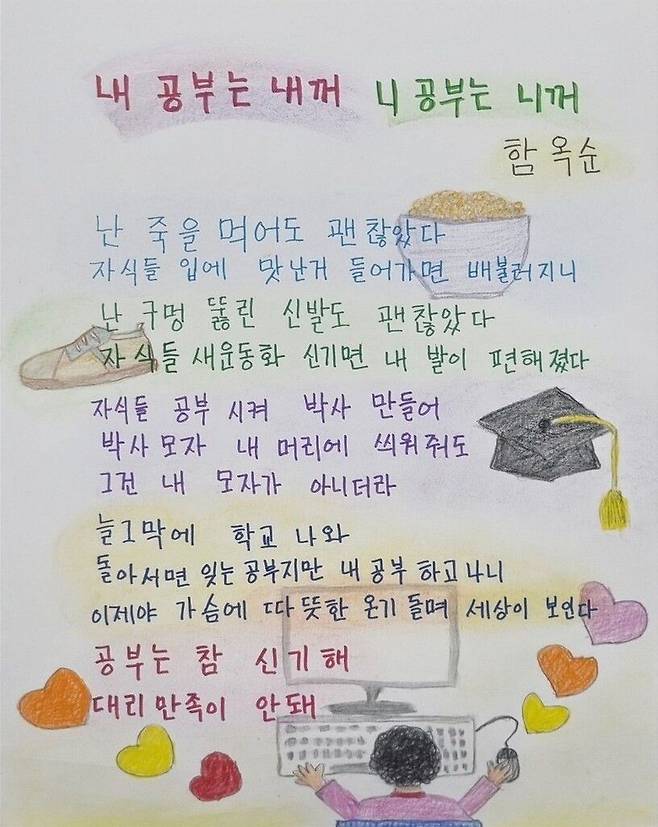 내 공부는 내꺼 니 공부는 니꺼
함 옥순
난 죽을 먹어도 괜찮았다
자식들 입에 맛난거 들어가면 배불러지니
난 구멍 뚫린 신발도 괜찮았다
자식들 새운동화 신기면 내 발이 편해졌다
자식들 공부 시켜 박사 만들어
박사모자 내 머리에 씌워줘도
그건 내 모자가 아니더라
늘그막에 학교 나와
돌아서면 잊는 공부지만 내 공부 하고나니
이제야 가슴에 따뜻한 온기 들며 세상이 보인다
공부는 참 신기해
대리만족이 안돼